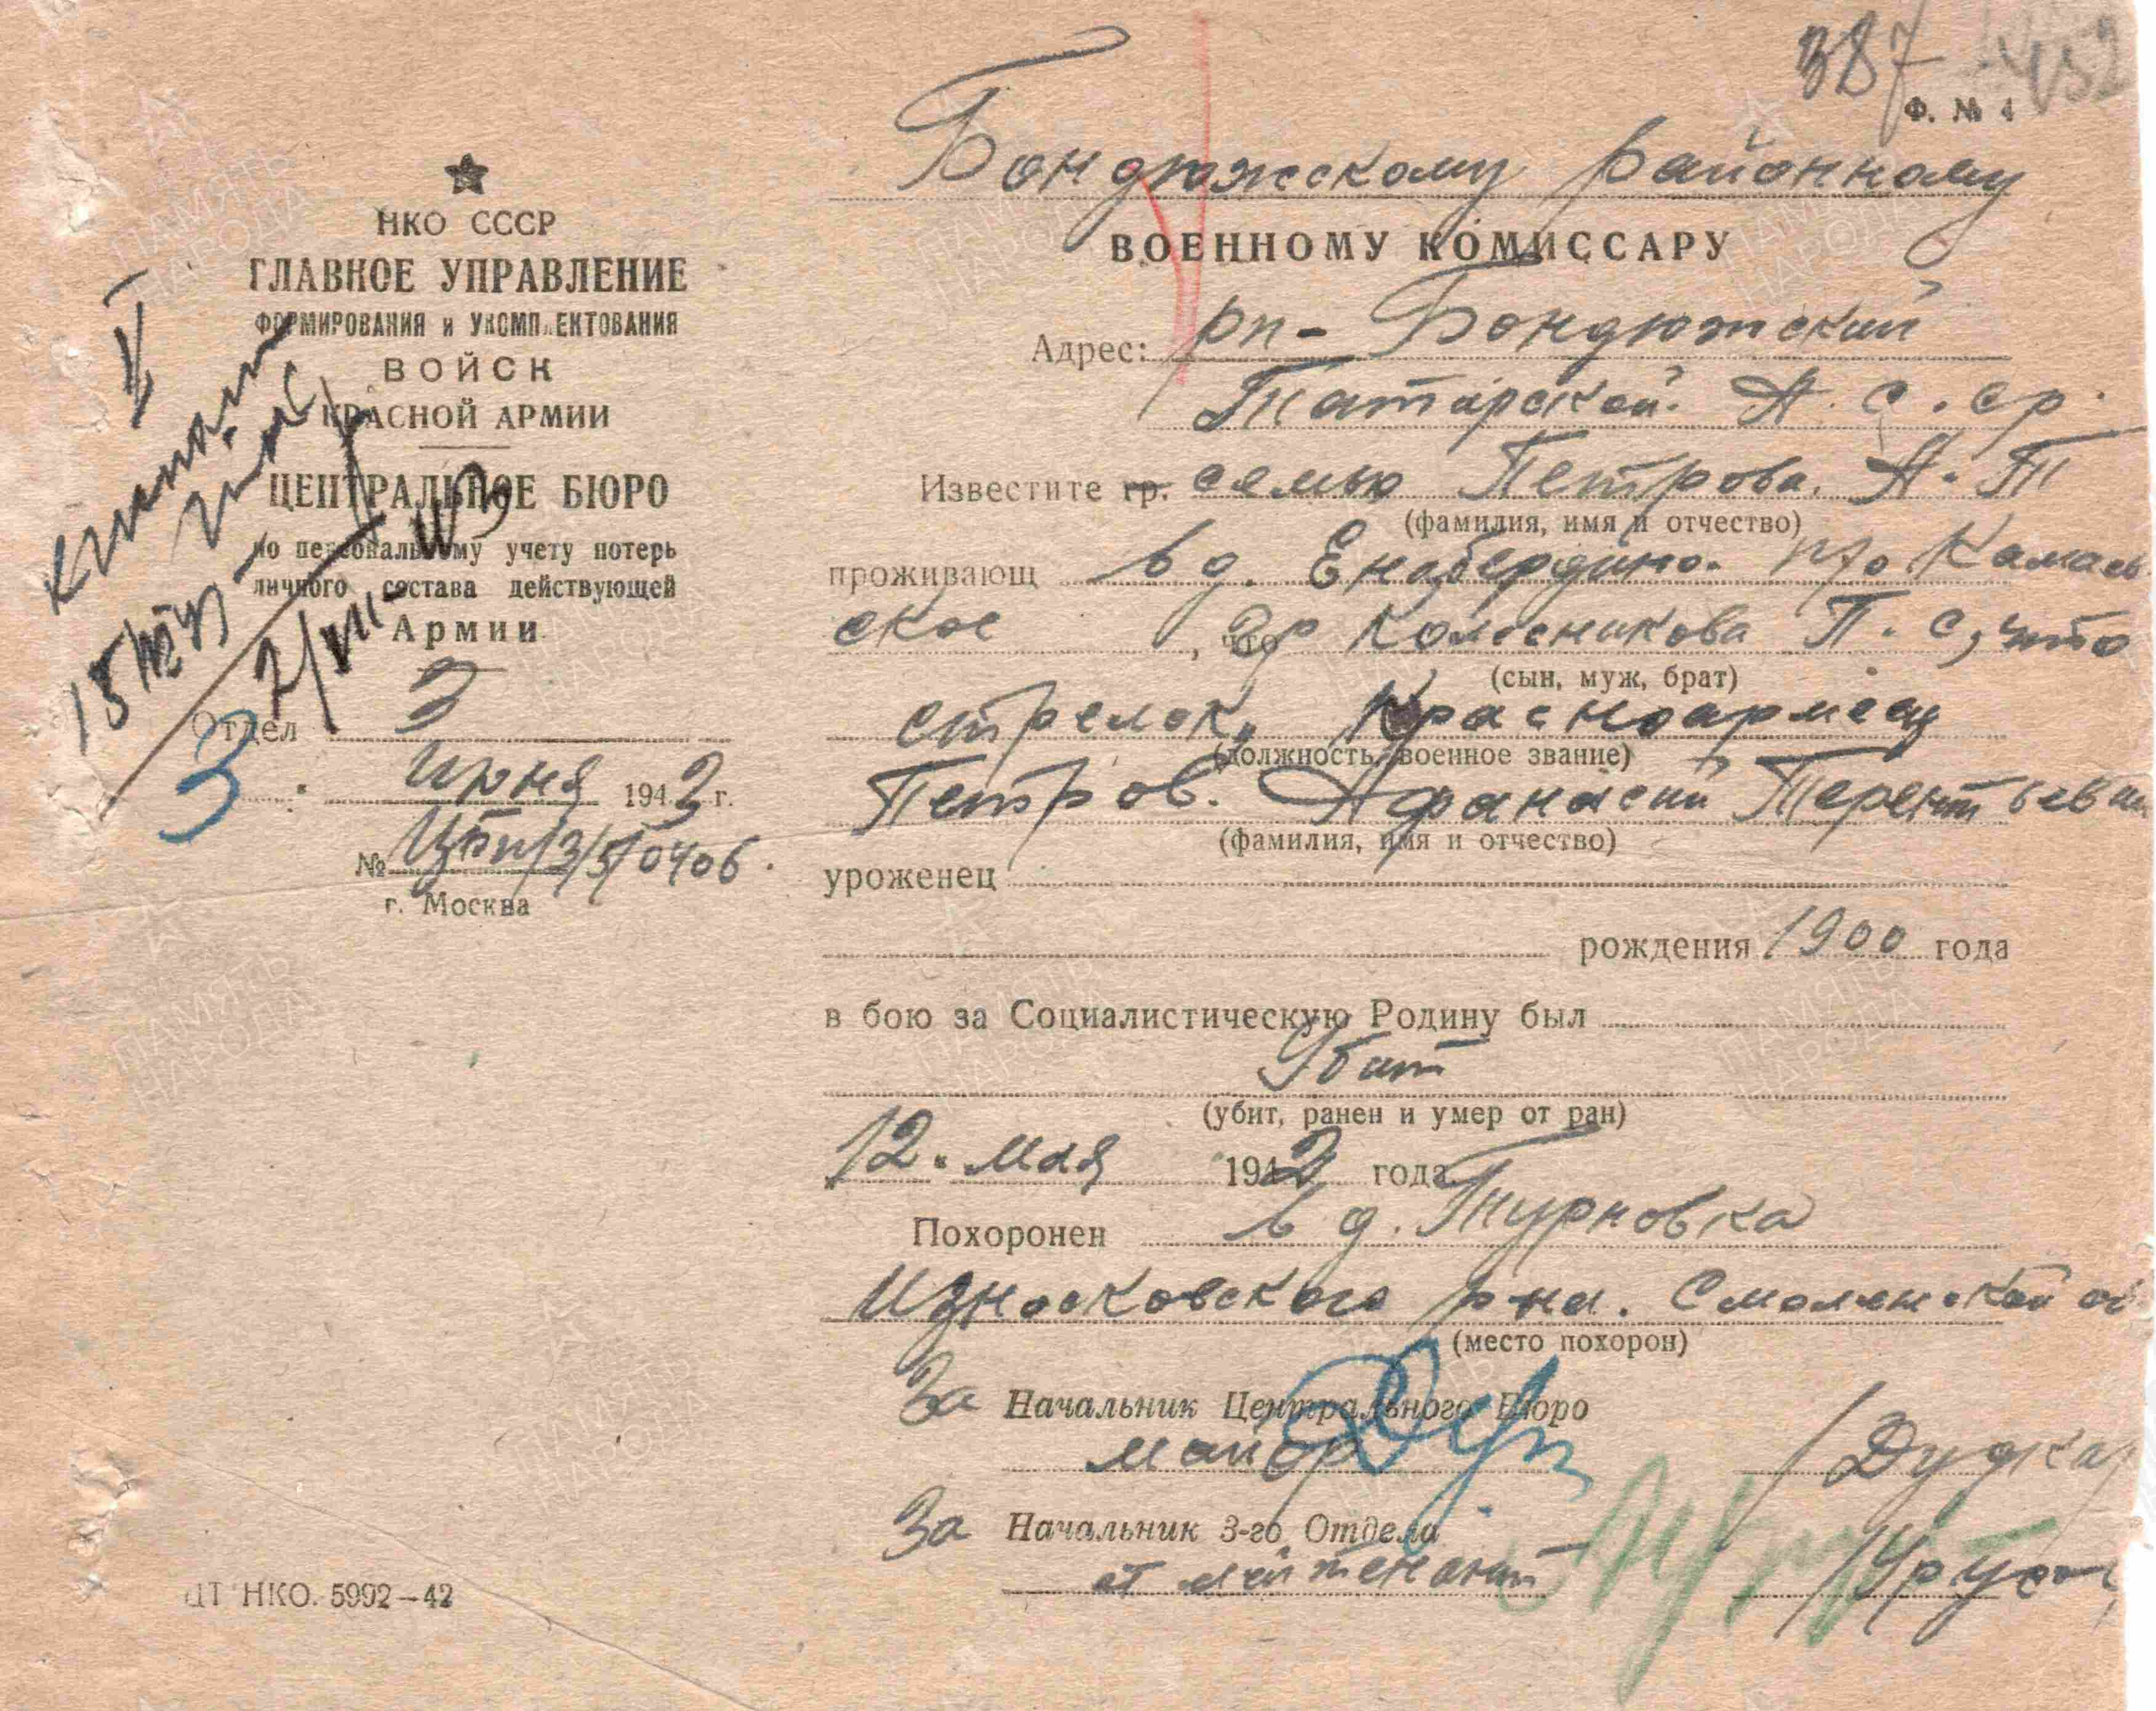 387
Ф. № 4
НКО СССР
ГЛАВНОЕ УПРАВЛЕНИЕ
ФОРМИРОВАНИЯ и УКОМПЛЕКТОВАНИЯ
ВОЙСК
КРАСНОЙ АРМИИ
ЦЕНТРАЛЬНОЕ БЮРО
по персональному учету потерь
личного состава действующей
Армии
Отдел 3
3 июня 1943 г.
№ Цбп/3/5/0406
г. Москва
ЦТ НКО. 5992—42
Бондюжскому районному
ВОЕННОМУ КОМИССАРУ
Адрес: рп- Бондюжский
Татарской А. С. ср.
Известите гр. семью Петрова. А. Т
(фамилия, имя и отчество)
проживающ в д. Енабердино. п/о Камаев
ское , что др Колесникова П. С, что
(сын, муж, брат)
стрелок, Красноармеец
(должность, военное звание)
Петров. Афанасий Терентьевич
(фамилия, имя и отчество)
уроженец
рождения 1900 года
в бою за Социалистическую Родину был
Убит
(убит, ранен и умер от ран)
12. мая 1942 года
Похоронен в д. Турновка
Износковского р-на. Смоленской об
(место похорон)
За Начальник Центрального Бюро
майор /Дудка
За Начальник 3-го Отдела
ст лейтенант
ПАМЯТЬ НАРОДА